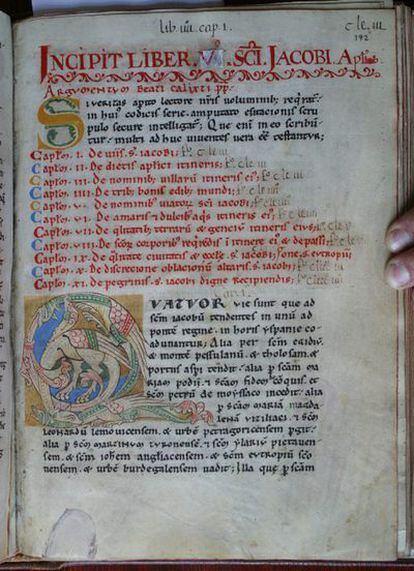 lib. iiii. cap. 1.
192
INCIPIT LIBER SCI JACOBI
Argumentum beati calixti pp.
Si veritas a perito lectore nris voluminib; requirat
in hui codicis serie. amputato esitacionis scru
pulo secure intelligat; Que eni in eo scribun
tur. multi adhuc viventes vera ee testantur;
Caplm. I. De viis s. iacobi;
Caplm. II. De dietis aplici itineris;
Caplm. III. De nominib; villaru itineris ei;
Caplm. IIII. De trib; bonis edib; mundi;
Caplm. V. De nominib; viator sci iacobi;
Caplm. VI. De amaris & dulcib; aqis itineris ei;
Caplm. VII. De qlitatib; terraru & genciu itineris eius;
Caplm. VIII. De scor corporib; reqirendis i itinere ei & de passi
Caplm. IX. De qlitate civitatis & eccle s. iacobi;
Caplm. X. De discrecione oblacionu altaris s. iacobi;
Caplm. XI. De pegrinis s. iacobi digne recipiendis;
QUATUOR vie sunt que ad
scm iacobu tendentes in unu ad
ponte regine. in horis yspanie co
adunantur; Alia per scm egidiu
& monte pessulanu. & tholosam. &
portus aspi tendit. alia p scam ma
riam podii. & scam fidem de conquis. &
scm petru de moyssaco incedit. alia
p scam maria magda
lena viziliaci. & scm
leonardu lemovicensem. & urbe petragoricensem pgit.
alia p scm martinu turonense. & scm ylariu pictaven
sem. & scm iohem angliacensem. & scm eutropiu sco
nensem. & urbe burdegalensem vadit; Illa que p scam